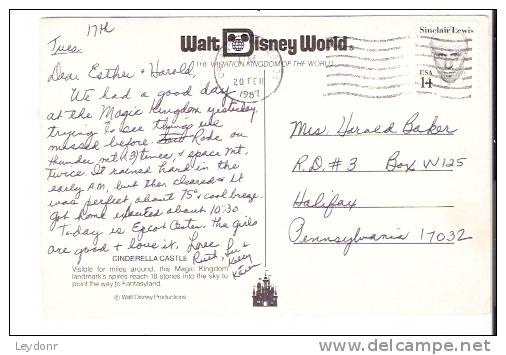 17th
Tues.
Walt Disney World®
THE VACATION KINGDOM OF THE WORLD
20 FEB
1987
Sinclair Lewis
USA
14
Dear Esther + Harold,
We had a good day
at the Magic Kingdom yesterday,
trying to see things we
missed before. Rode on
thunder mt. (3) times, + space mt.
twice. It rained hard in the
early A.M. but then cleared + it
was perfect about 75°, + cool breeze.
Got home exhausted about 10:30
Today is Epcot Center. The girls
are good + love it. Love
Ruth, Lu +
Kelly
Karen
CINDERELLA CASTLE
Visible for miles around, this Magic Kingdom
landmark's spires reach 18 stories into the sky to
point the way to Fantasyland.
© Walt Disney Productions
Mrs Harold Baker
R.D. #3 Box W125
Halifax
Pennsylvania 17032
Leydonr
delcampe.net